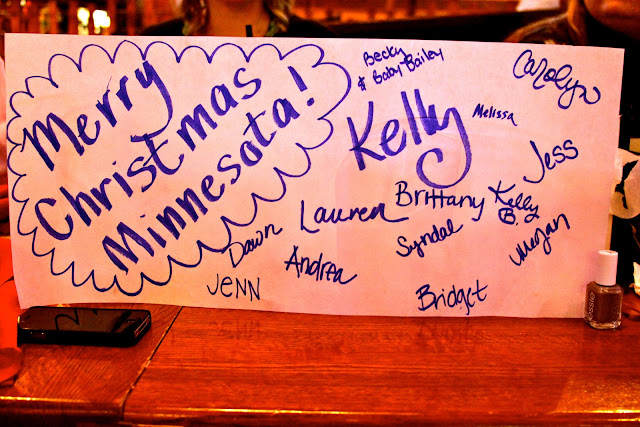 Merry
Christmas
Minnesota!
Becky
& Baby Bailey
Carolyn
Kelly
Melissa
Jess
Brittany
Kelly
B.
Lauren
Dawn
Syndal
Megan
Andrea
JENN
Bridget
essie